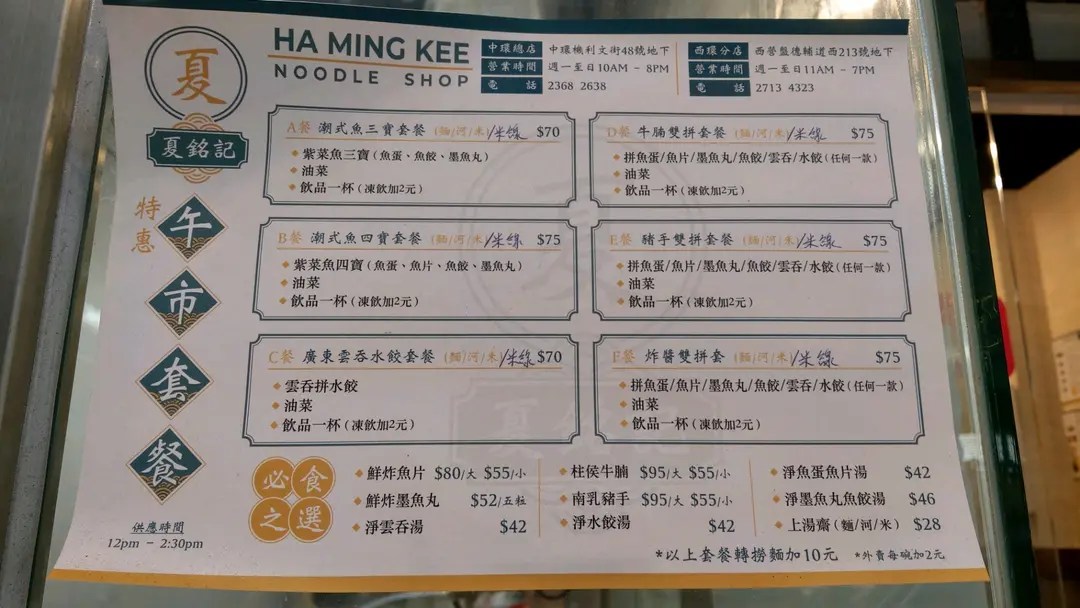 夏
夏銘記
HA MING KEE
NOODLE SHOP
中環總店 中環機利文街48號地下
營業時間 週一至日10AM – 8PM
電話 2368 2638
西環分店 西營盤德輔道西213號地下
營業時間 週一至日11AM – 7PM
電話 2713 4323
特惠
午市套餐
供應時間
12pm – 2:30pm
A餐 潮式魚三寶套餐 (麵/河/米)/米線 $70
紫菜魚三寶(魚蛋、魚餃、墨魚丸)
油菜
飲品一杯(凍飲加2元)
B餐 潮式魚四寶套餐 (麵/河/米)/米線 $75
紫菜魚四寶(魚蛋、魚片、魚餃、墨魚丸)
油菜
飲品一杯(凍飲加2元)
C餐 廣東雲吞水餃套餐 (麵/河/米)/米線 $70
雲吞拼水餃
油菜
飲品一杯(凍飲加2元)
D餐 牛腩雙拼套餐 (麵/河/米)/米線 $75
拼魚蛋/魚片/墨魚丸/魚餃/雲吞/水餃(任何一款)
油菜
飲品一杯(凍飲加2元)
E餐 豬手雙拼套餐 (麵/河/米)/米線 $75
拼魚蛋/魚片/墨魚丸/魚餃/雲吞/水餃(任何一款)
油菜
飲品一杯(凍飲加2元)
F餐 炸醬雙拼套 (麵/河/米)/米線 $75
拼魚蛋/魚片/墨魚丸/魚餃/雲吞/水餃(任何一款)
油菜
飲品一杯(凍飲加2元)
夏銘記
必食之選
鮮炸魚片 $80/大 $55/小
鮮炸墨魚丸 $52/五粒
淨雲吞湯 $42
柱侯牛腩 $95/大 $55/小
南乳豬手 $95/大 $55/小
淨水餃湯 $42
淨魚蛋魚片湯 $42
淨墨魚丸魚餃湯 $46
上湯齋(麵/河/米) $28
*以上套餐轉撈麵加10元 *外賣每碗加2元